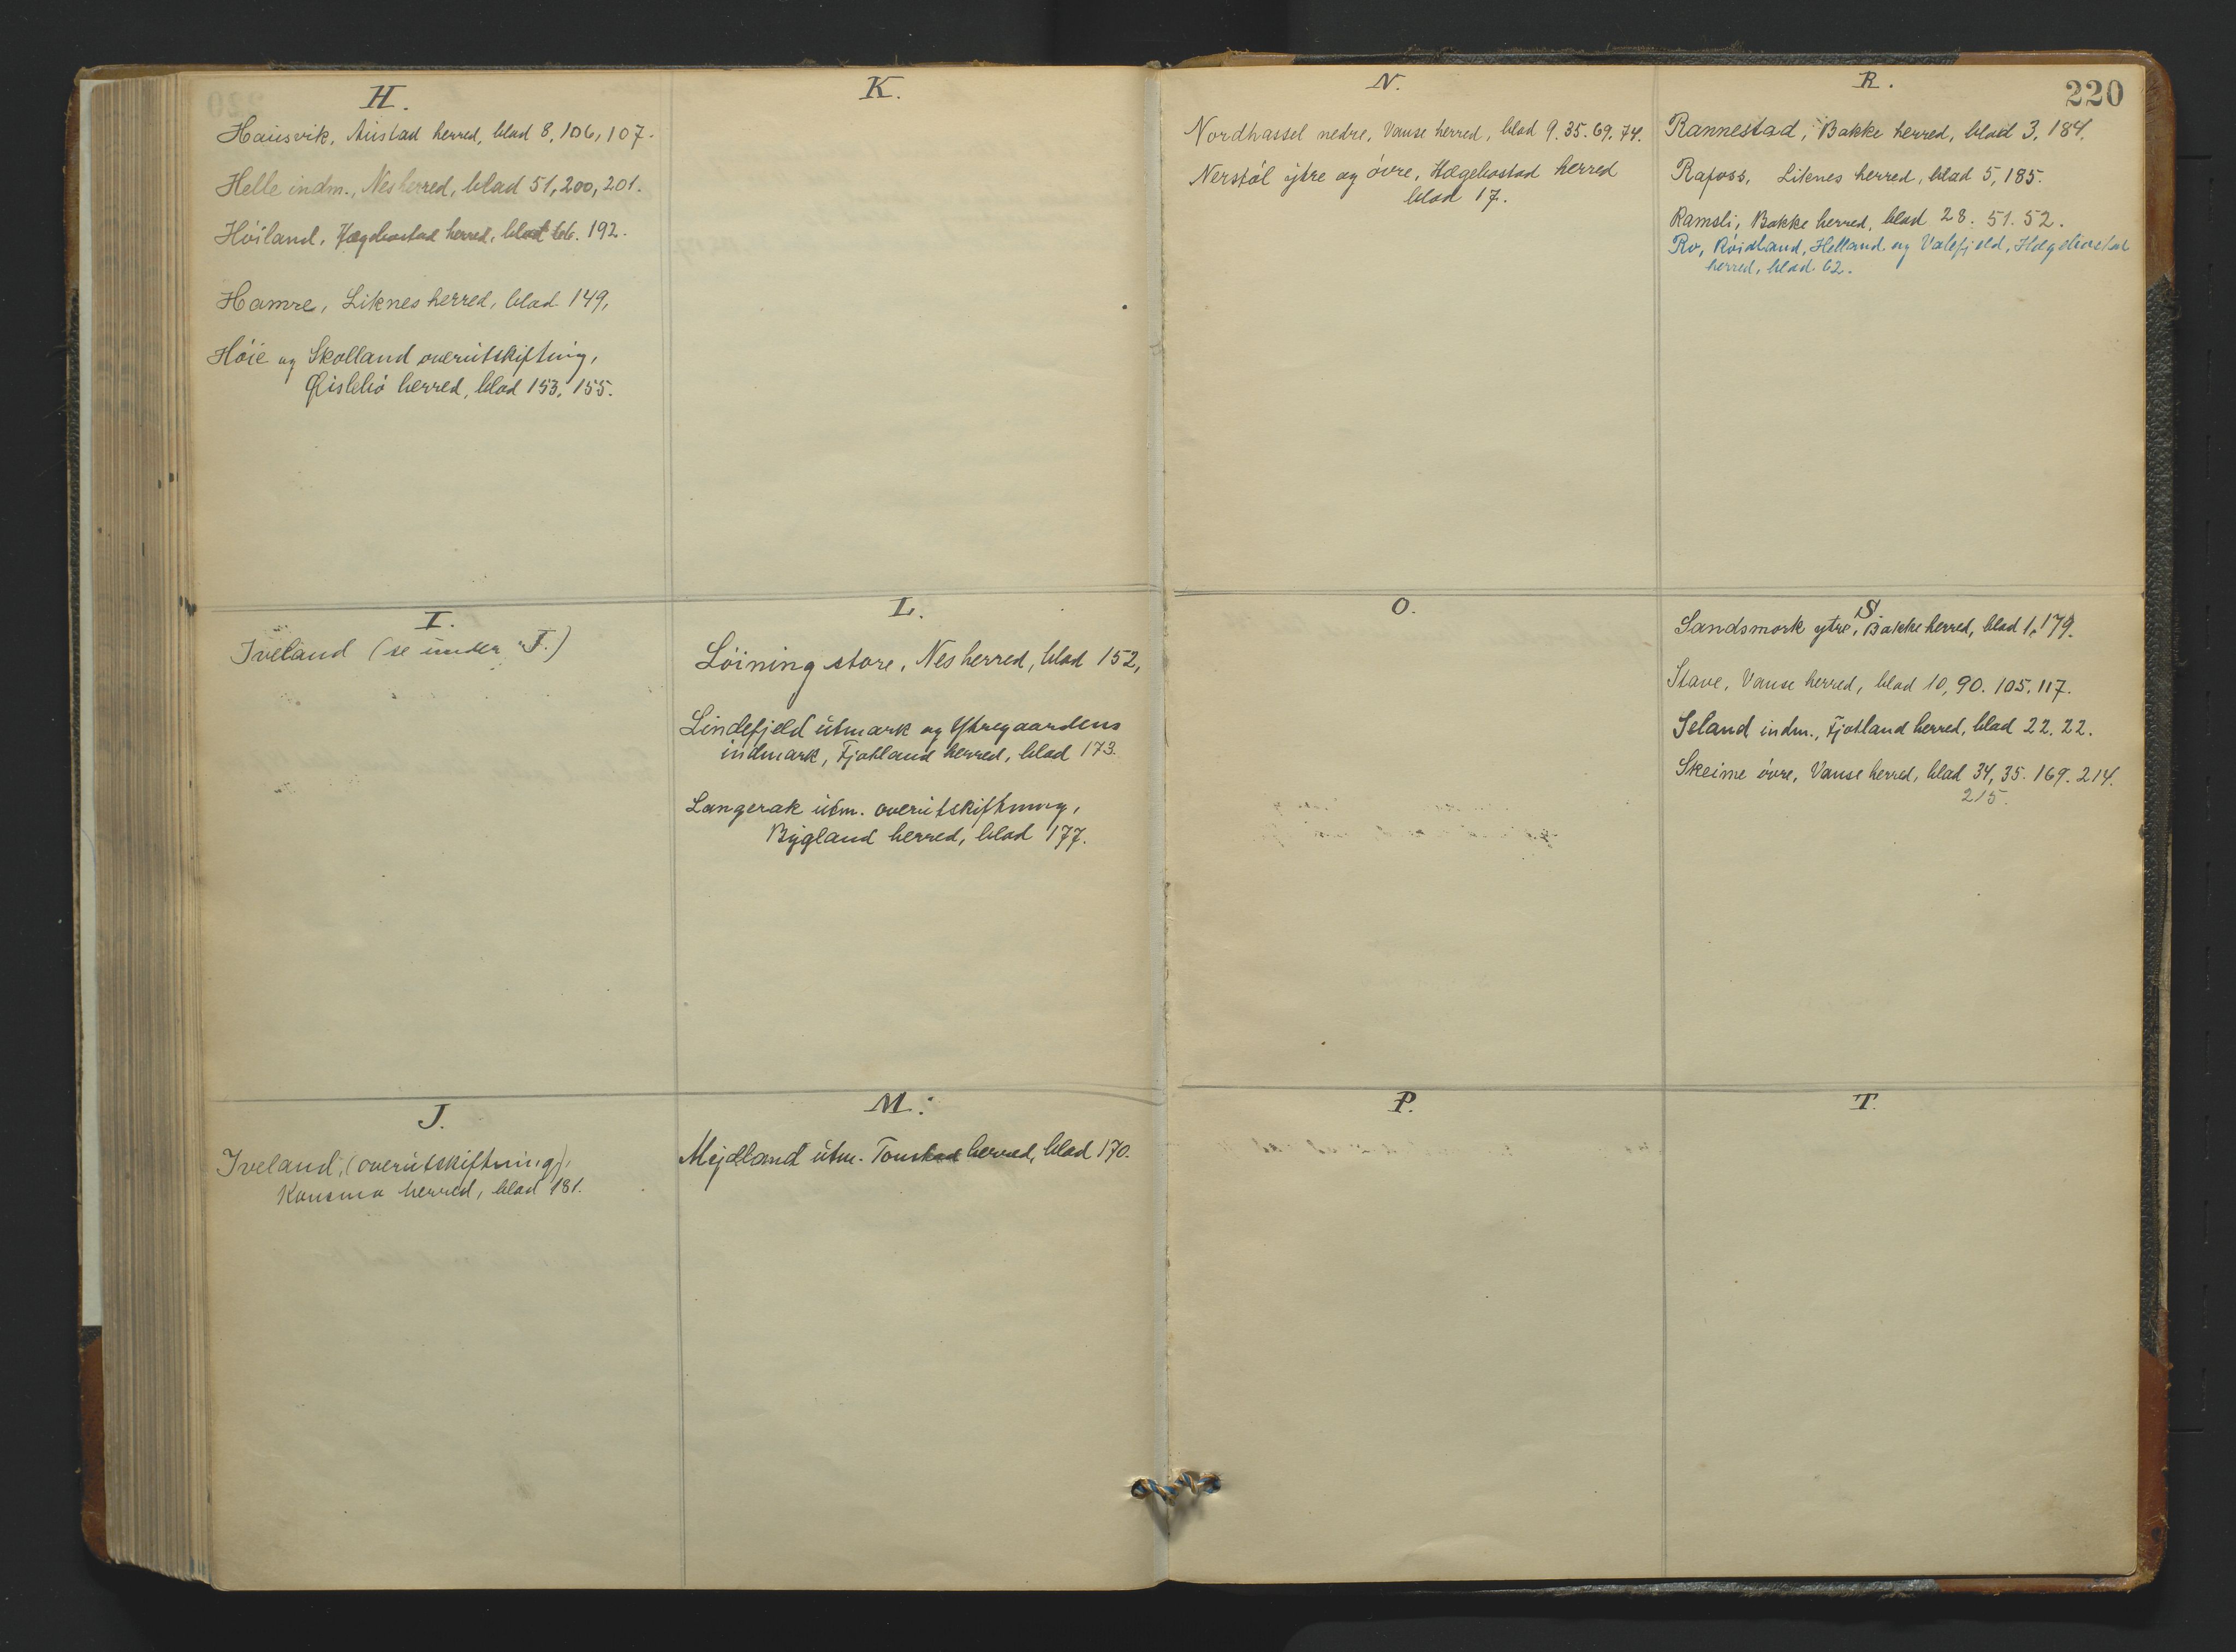 H.
Hausvik, Austad herred, blad 8, 106, 107.
Helle indm., Nes herred, blad 51, 200, 201.
Höiland, Hægebostad herred, blad 66. 192.
Hamre, Liknes herred, blad 149,
Höie og Skolland overutskiftning,
Øislebö herred, blad 153, 155.
K.
I.
Iveland (se under J.)
L.
Löining store, Nes herred, blad 152,
Lindefjeld utmark og Ytregaardens
indmark, Fjotland herred, blad 173.
Langerak utm. overutskiftning,
Bygland herred, blad 177.
J.
Iveland, (overutskiftning),
Konsmo herred, blad 181.
M.
Mejdland utm. Tonstad herred, blad 170.
N.
Nordhassel nedre, Vanse herred, blad 9. 35. 69. 74.
Nerstöl ytre og övre, Hægebostad herred
blad 17.
R.
220
Rannestad, Bakke herred, blad 3, 184.
Rafoss, Liknes herred, blad 5, 185.
Ramsli, Bakke herred, blad 28. 51. 52.
Ro, Röidland, Helland og Valefjeld, Hægebostad
herred, blad 62.
O.
S.
Sandsmork ytre, Bakke herred, blad 1, 179.
Stave, Vanse herred, blad 10, 90. 105. 117.
Seland indm., Fjotland herred, blad 22. 22.
Skeime övre, Vanse herred, blad 34, 35. 169. 214.
215.
P.
T.